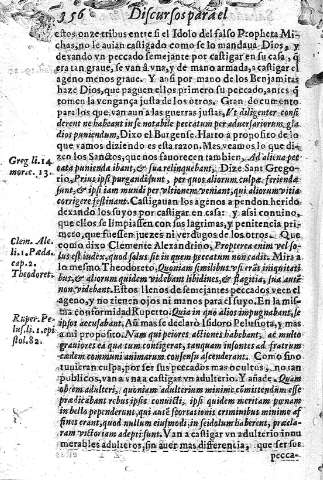 356 Discursos para el
estos onze tribus entre si el Idolo del falso Propheta Mi-
chas, no le auian castigado como se lo mandaua Dios, y
dexando vn pecado semejante por castigar en su casa, q̃
era tan graue, se van â vna, y de mano armada, a castigar el
ageno menos graue. Y assi por mano de los Benjamitas
haze Dios, que paguen ellos primero su peccado, antes q̃
tomen la vengança justa de los otros. Gran documento
para los que van aun a las guerras justas, Vt diligenter consi-
derent ne habeant in se notabile peccatum per aduersariorum, gla
dios puniendum, Dixo el Burgense. Harto a proposito de lo
que vamos diziendo es esta razon. Mes, veamos lo que di-
zen los Sanctos, que nos fauorecen tambien. Ad aliena pec
cata punienda ibant, & sua relinquebant; Dize Sant Grego-
rio, Prius ipsi purgandi sunt, per quos aliorum culpæ feriendæ
sunt, & ipsi iam mundi per vltionem veniant, qui aliorum vitia
corrigere festinant. Castigauan los agenos a pendon herido.
dexando los suyos por castigar en casa: y assi conuino,
que ellos se limpiassen con sus lagrimas, y penitencia pri
mero, que fuessen juezes ni verdugos de los otros. Que
como dixo Clemente Alexandrino, Propterea enim vel so-
lus est iudex, quod solus sit in quem peccatum non cadit. Mira a
lo mesmo Theodoreto, Quoniam similibus vestræ iniquitati
bus, & aliorum quidem videbant libidines, & flagitia, sua aut
non videbant. Estos llenos de semejantes peccados veen el
ageno, y no tienen ojos ni manos para el suyo. En la mis-
ma conformidad Ruperto. Quia in quo alios impugnabant, se
ipsos accusabant. Aũ mas se declarò Isidoro Pelusiota, y mas
a mi proposito. Nam qui peiores actiones habebant, ac multo
grauiores ea quæ tum contigerat, tanquam infontes ad fratrum
cædem communi animarum consensu ascenderant. Como si no
tuuieran culpa, por ser sus peccados mas ocultos, no tan
publicos, van a vna a castigar vn adulterio. Y añade. Quam
ob rem adulteri, quoniam adulterium minime committendum esse
prædicabant rebus ipsis conuicti, ipsi quidem meritam pœnam
in bello pependerunt, qui autē scortationis criminibus minime af
fines erant, quod nullum eiusmodi, in se idolum haberent, præcla-
ram victoriam adepti sunt. Van a castigar vn adulterio innu
merables adulteros, sin auer mas diferencia, que ser sus
pecca-
Greg li. 14
morat. 13.
Clem. Ale.
li. 1, Pæda.
cap. 2.
Theodoret.
Ruper. Pe-
lus. li. 1. epi
stol. 82.